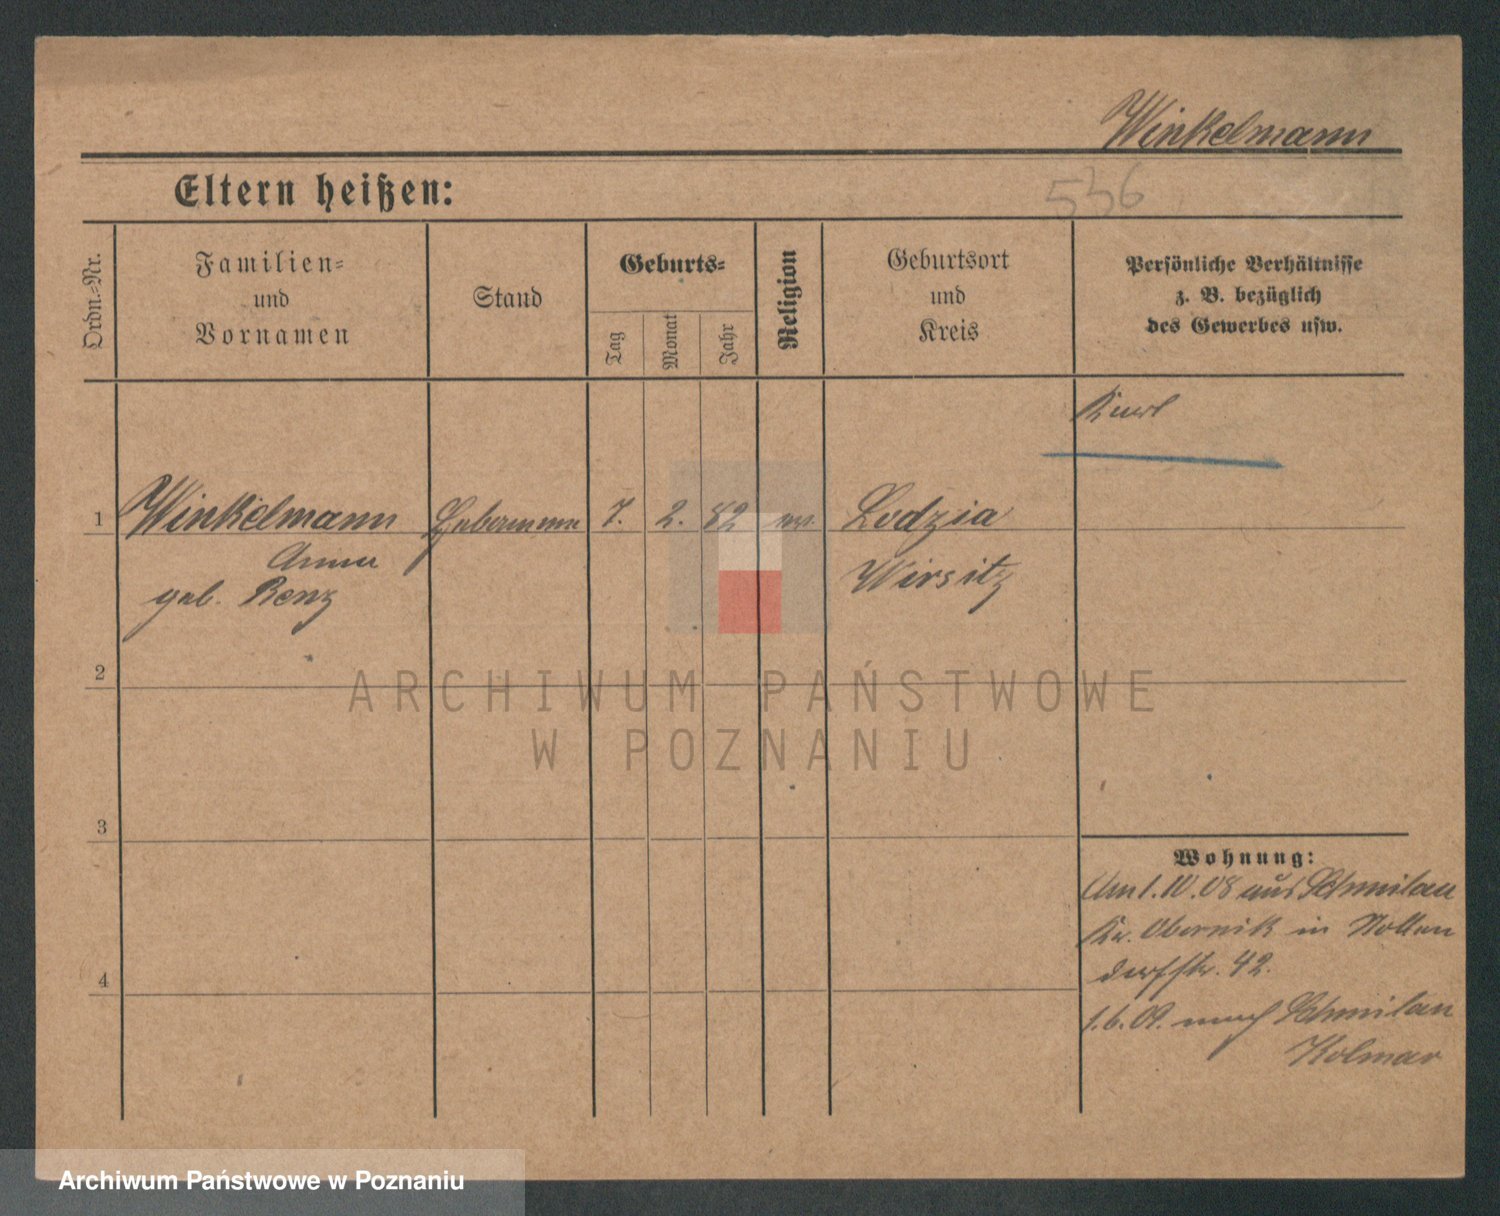 Winkelmann
Eltern heißen:
536
Ordn.-Nr.
Familien-
und
Vornamen
Stand
Geburts-
Tag
Monat
Jahr
Religion
Geburtsort
und
Kreis
Persönliche Verhältnisse
z. B. bezüglich
des Gewerbes usw.
1
Winkelmann
Anna
geb. Renz
Hebamme
7.
2.
82
ev.
Lodzia
Wirsitz
2
3
4
Wohnung:
Am 1.10.08 aus Schmilau
Kr. Obornik in Nollen
dorfstr. 42.
1.6.09. nach Schmilau
Kolmar
ARCHIWUM PAŃSTWOWE
W POZNANIU
Archiwum Państwowe w Poznaniu